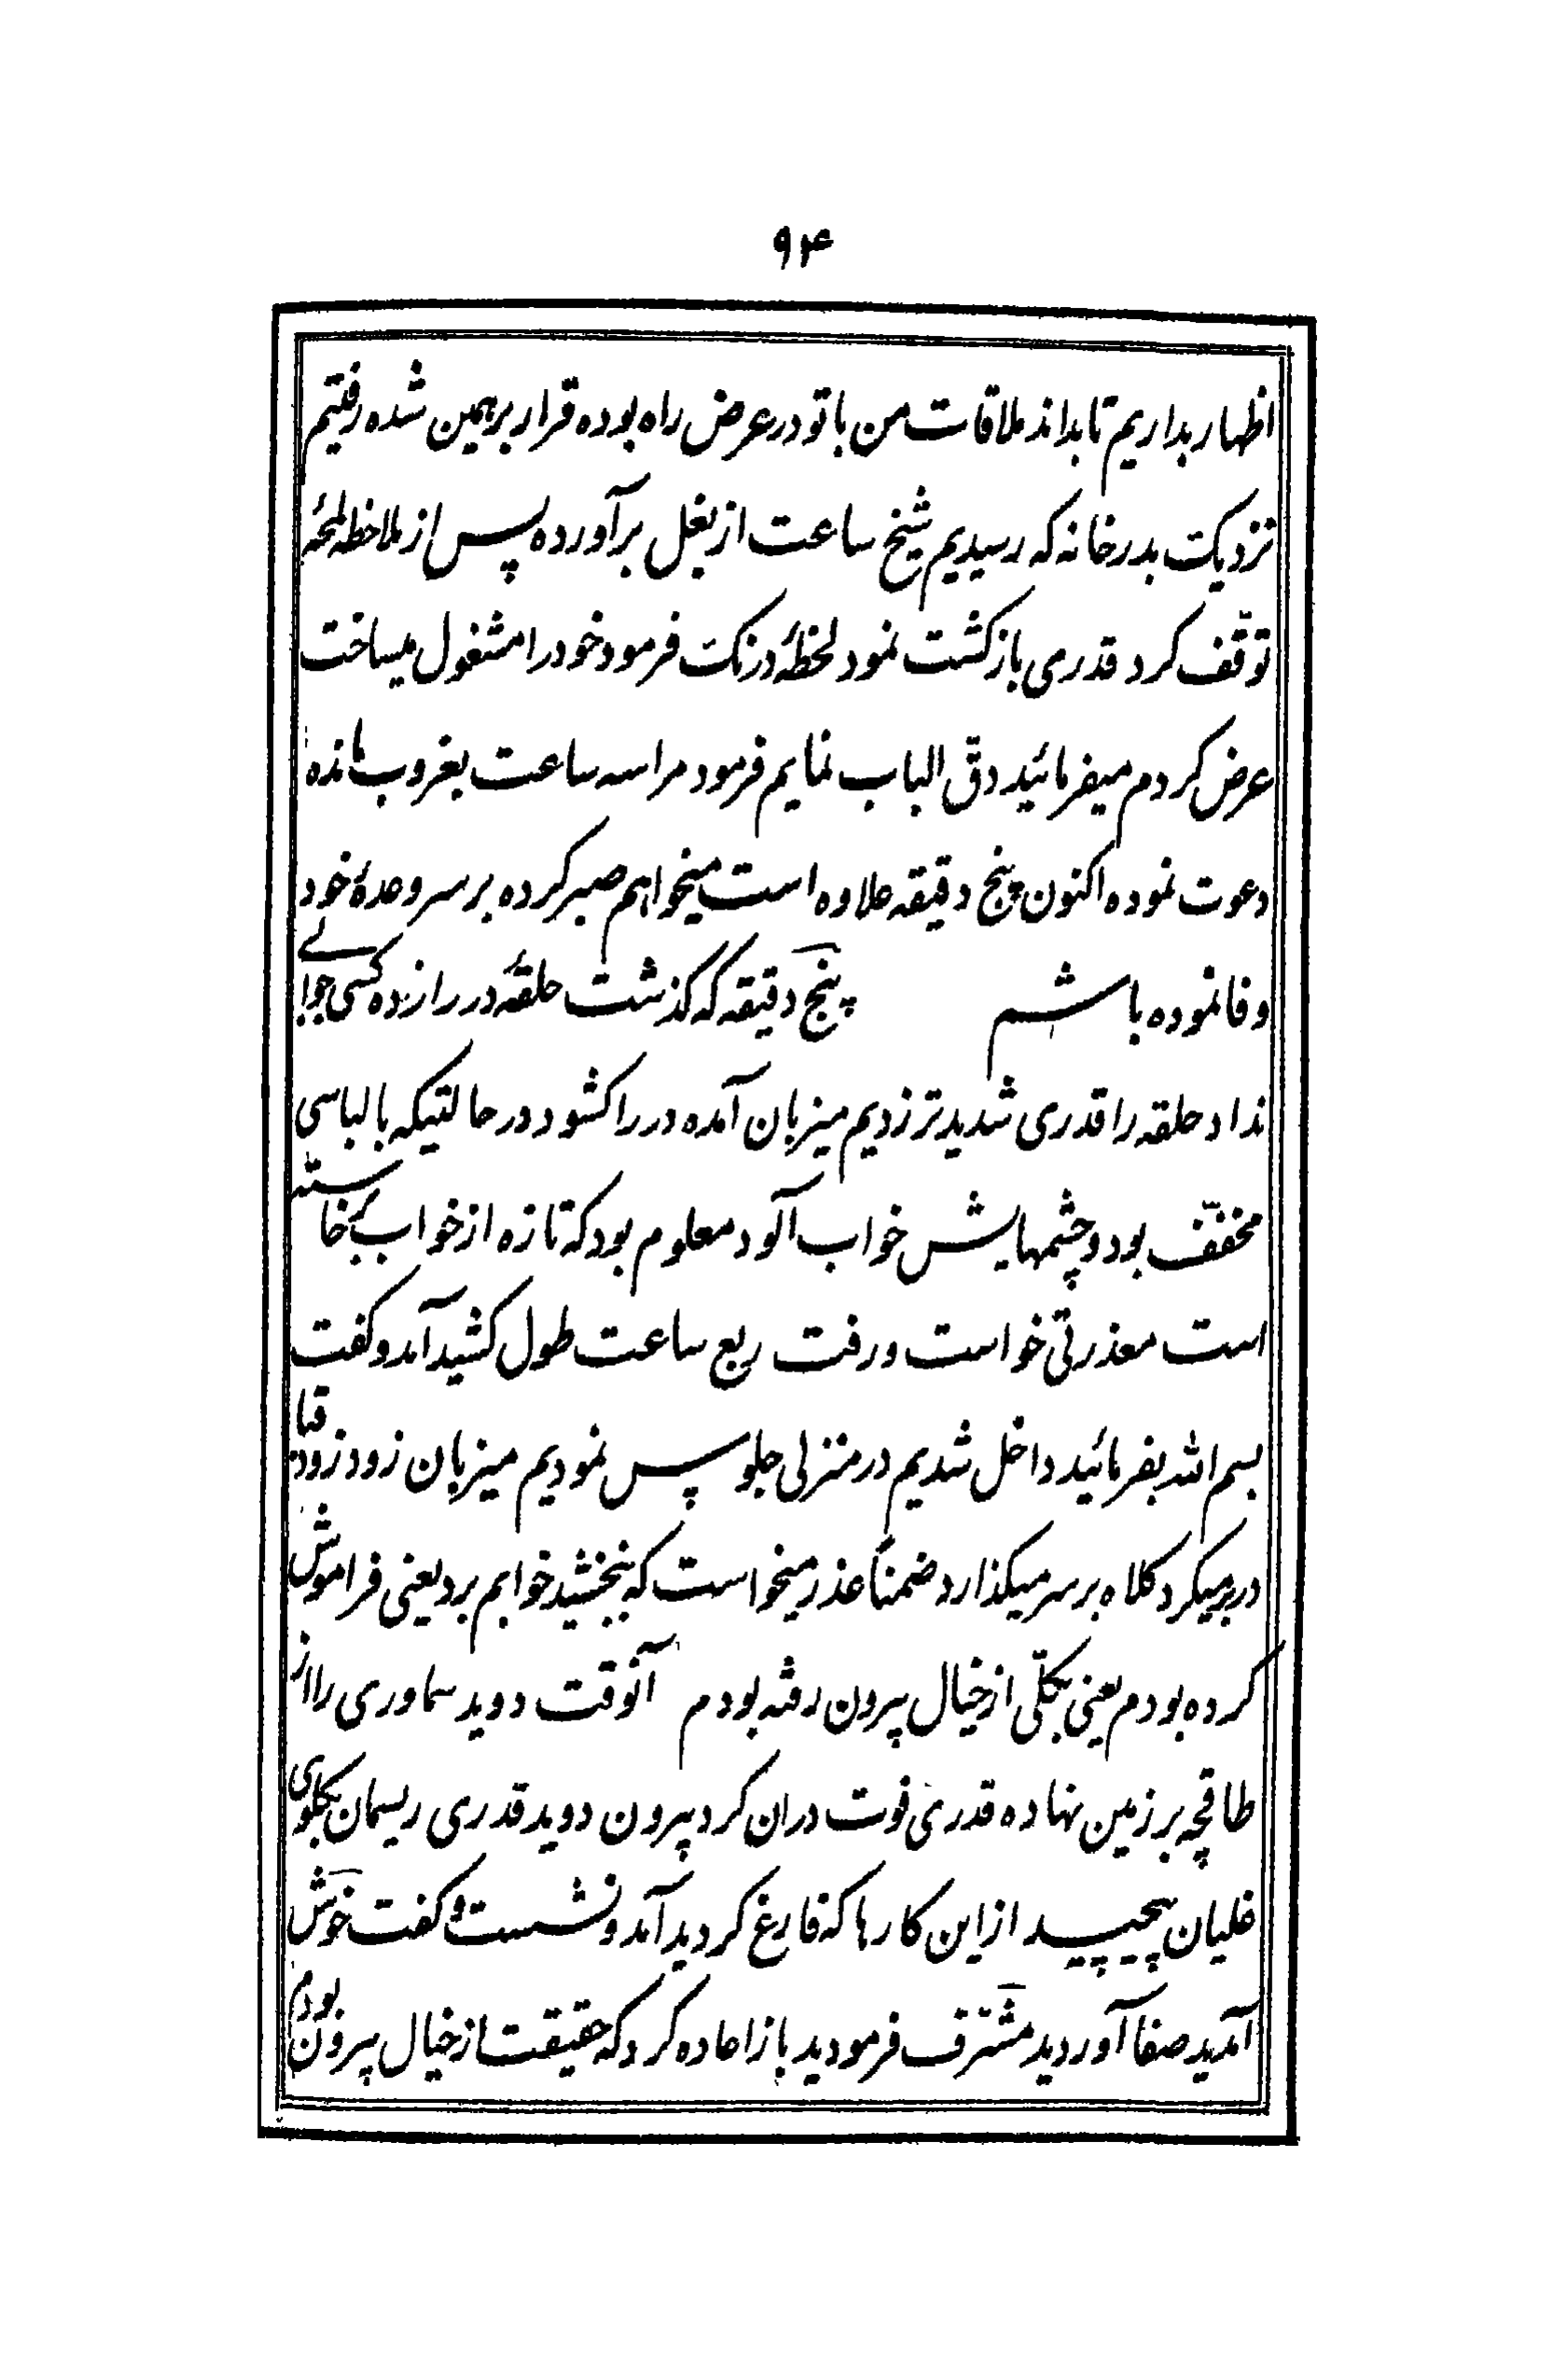 ۹۴
اظهار بداریم تا بداند ملاقات من با تو در عرض راه بوده قرار بر همین شده رفتیم
نزدیک بدرخانه که رسیدیم شیخ ساعت از بغل برآورده پس از ملاحظه لمحهٔ
توقّف کرد قدری بازکشت نمود لحظهٔ درنک فرمود خود را مشغول میساخت
عرض کردم میفرمائید دقّ الباب نمایم فرمود مرا سه ساعت بغروب مانده
دعوت نموده اکنون پنج دقیقه علاوه است میخواهم صبر کرده بر سر وعدهٔ خود
وفا نموده باشم پنج دقیقه که کذشت حلقهٔ در را زده کسی جوابی
نداد حلقه را قدری شدیدتر زدیم میزبان آمده در را کشود در حالتیکه با لباسی
مخفّف بود و چشمهایش خواب آلود معلوم بود که تازه از خواب برخاسته
است معذرتی خواست و رفت ربع ساعت طول کشید آمد و کفت
بسم الله بفرمائید داخل شدیم در منزلی جلوس نمودیم میزبان زود زود قبا
دربر میکرد کلاه بر سر میکذارد ضمناً عذر میخواست که ببخشید خوابم برد یعنی فراموش
کرده بودم یعنی بکلّی از خیال بیرون رفته بودم آنوقت دوید سماوری را از
طاقچه بر زمین نهاده قدری فوت دران کرد بیرون دوید قدری ریسمان بکلوی
غلیان پیچید از این کارها که فارغ کردید آمد و نشست و کفت خوش
آمدید صفا آوردید مشرّف فرمودید باز اعاده کرد که حقیقت از خیال بیرون بودم